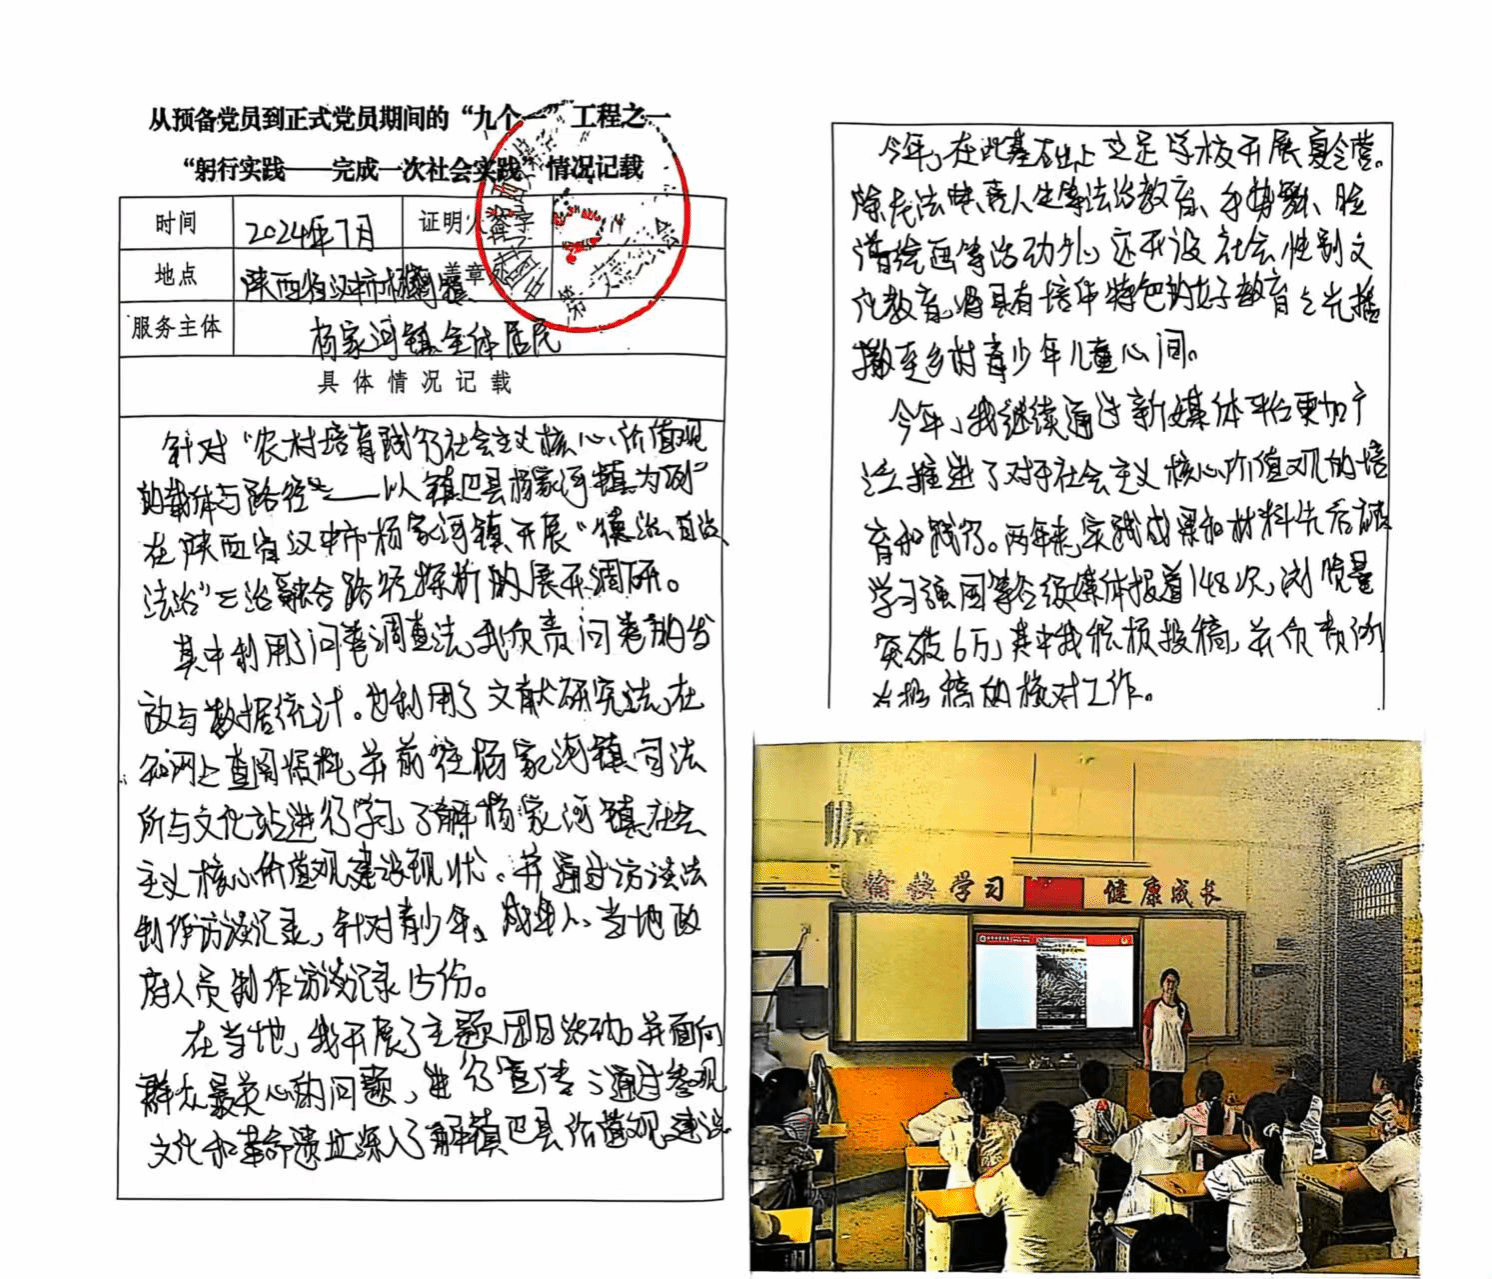 从预备党员到正式党员期间的“九个一”工程之一
“躬行实践——完成一次社会实践”情况记载
时间 2024年7月 证明人签
地点 陕西省汉中市杨家河镇 盖章处
服务主体 杨家河镇全体居民
具体情况记载
针对“农村培育践行社会主义核心价值观
的载体与路径——以镇巴县杨家河镇为例”
在陕西省汉中市杨家河镇开展“德治、自治、
法治”三治融合路径探析的展开调研。
其中利用了问卷调查法,我负责问卷的发
放与数据统计。也利用了文献研究法,在
知网上查阅资料,并前往杨家河镇司法
所与文化站进行学习,了解杨家河镇社会
主义核心价值观建设现状。并通过访谈法
制作访谈记录,针对青少年、成年人、当地政
府人员制作访谈记录15份。
在当地,我开展了主题团日活动,并面向
群众最关心的问题,进行宣传;通过参观
文化和革命遗址深入了解镇巴县价值观建设。
今年,在此基础上立足学校开展夏令营。
除龙法典亮人生等法治教育、手势舞、脸
谱绘画等活动外,还开设社会性别文
化教育,将具有培华特色的女子教育之光播
撒至乡村青少年儿童心间。
今年,我继续通过新媒体平台更加广
泛推进了对于社会主义核心价值观的培
育和践行。两年来,实践成果和材料先后被
学习强国等各级媒体报道148次,浏览量
突破6万,其中我积极投稿,并负责
投稿的核对工作。
愉快学习 健康成长